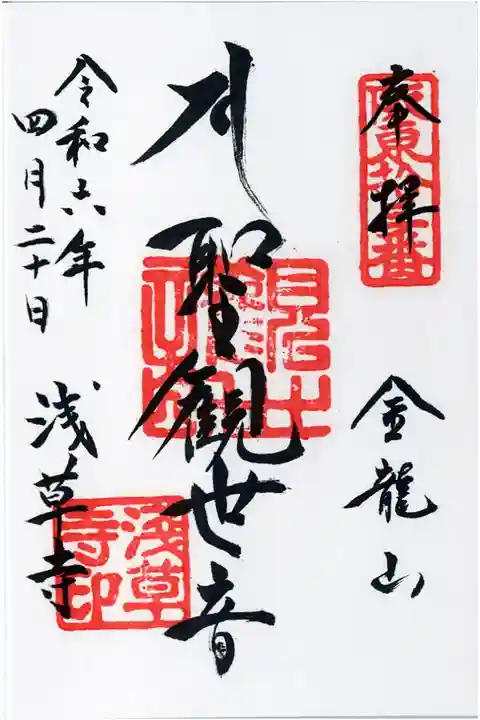 奉拝
坂東拾三番
金龍山
聖観世音
令和六年
四月二十日
浅草寺
淺草寺印